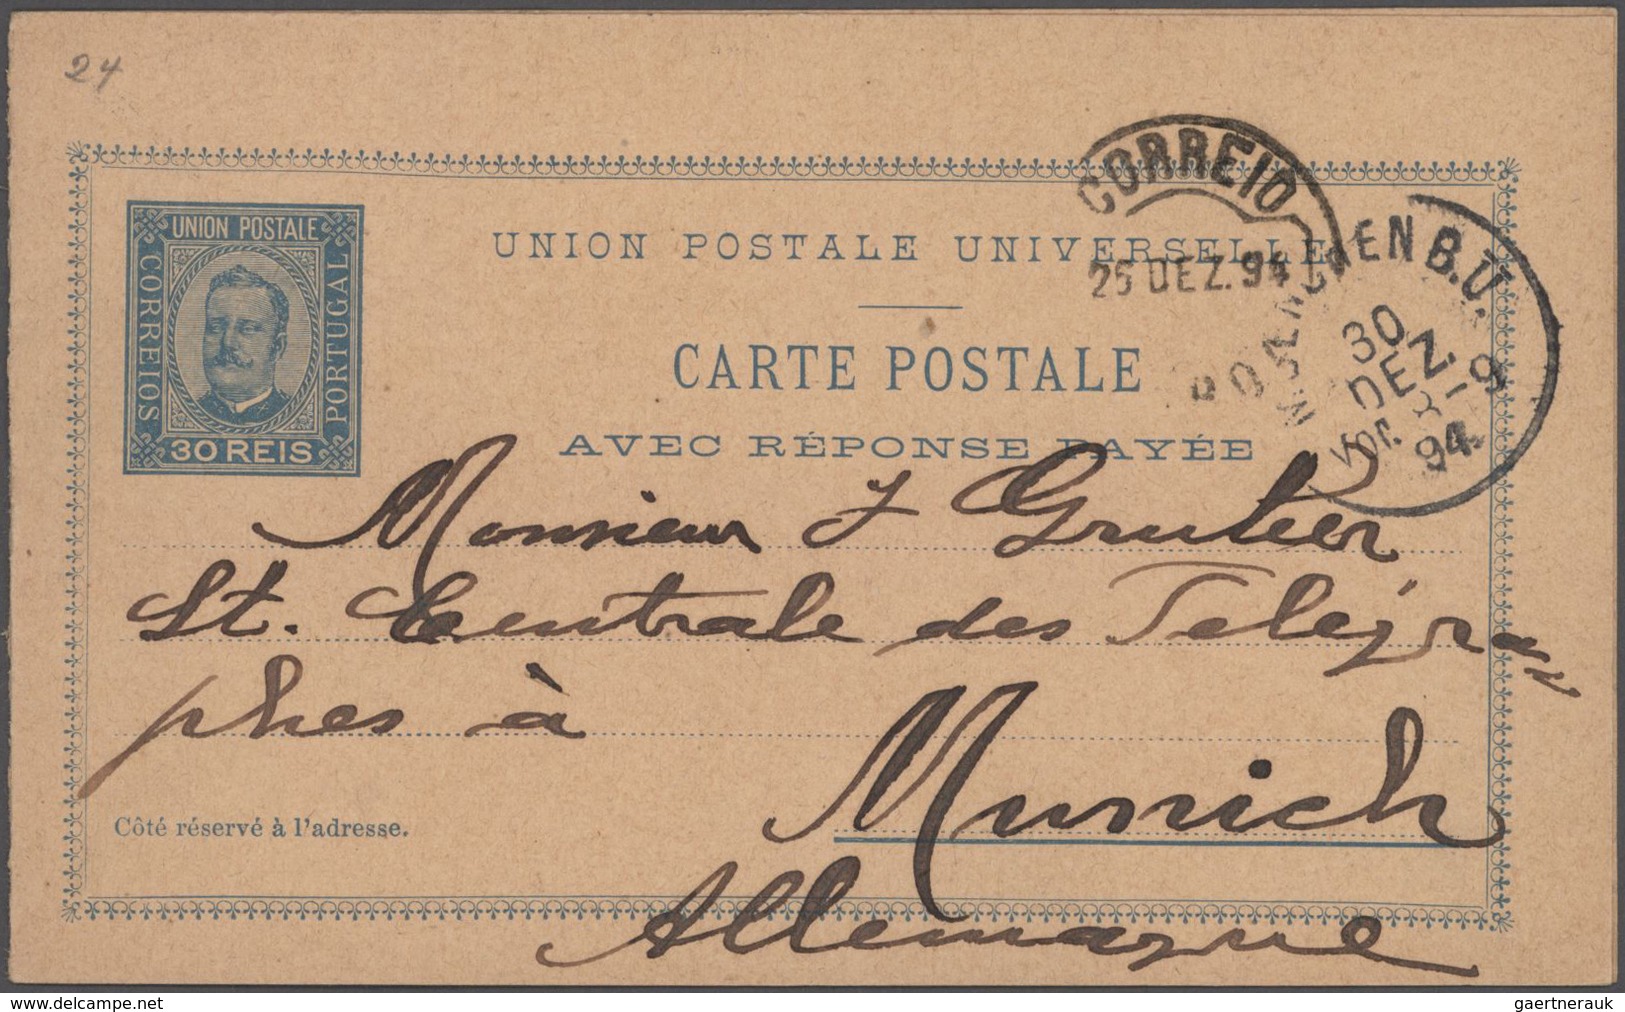 24
UNION POSTALE
CORREIOS
PORTUGAL
30 REIS
UNION POSTALE UNIVERSELLE
CARTE POSTALE
AVEC RÉPONSE PAYÉE
CORREIO
DEZ. 94
MUENCHEN B.
30
DEZ.
Vor. 8-9
94.
Monsieur J Gruber
St. Centrale des Telégra
phes à
Munich
Allemagne
Côté réservé à l'adresse.
delcampe.net
gaertnerauk